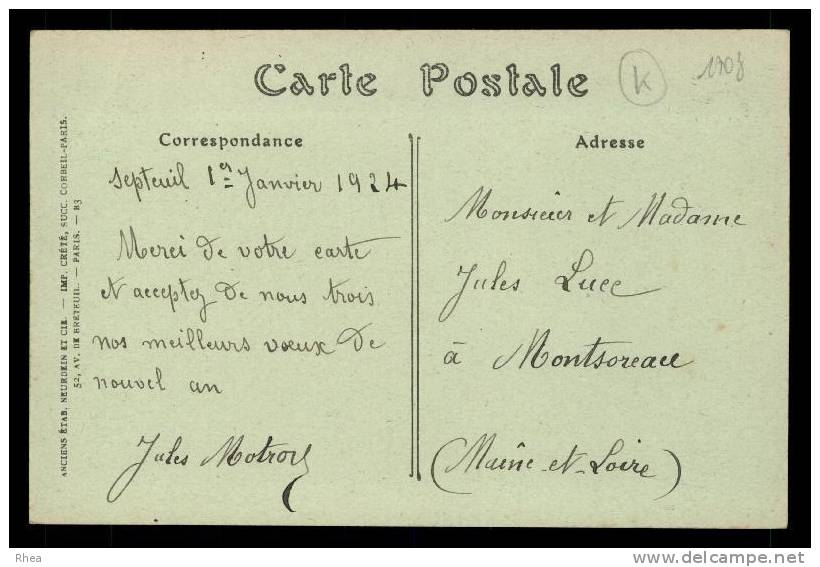 Carte Postale
K
1708
Correspondance
Septeuil 1er Janvier 1924
Merci de votre carte
et acceptez de nous trois
nos meilleurs voeux de
nouvel an
Jules Motron
Adresse
Monsieur et Madame
Jules Luce
à Montsoreau
(Maine-et-Loire)
ANCIENS ÉTAB. NEURDEIN ET CIE. — IMP. CRÉTÉ, SUCC. CORBEIL-PARIS.
52, AV. DE BRETEUIL. — PARIS. — B3
Rhea
www.delcampe.net